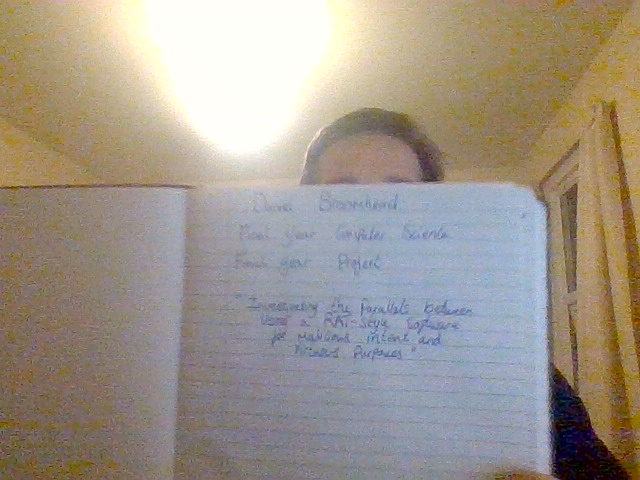 Broomhead
Final Year Computer Science
Final Year Project
" Investigating the Parallels between
Using a RAT-Style Software
for Malicious intent and
Purposes "